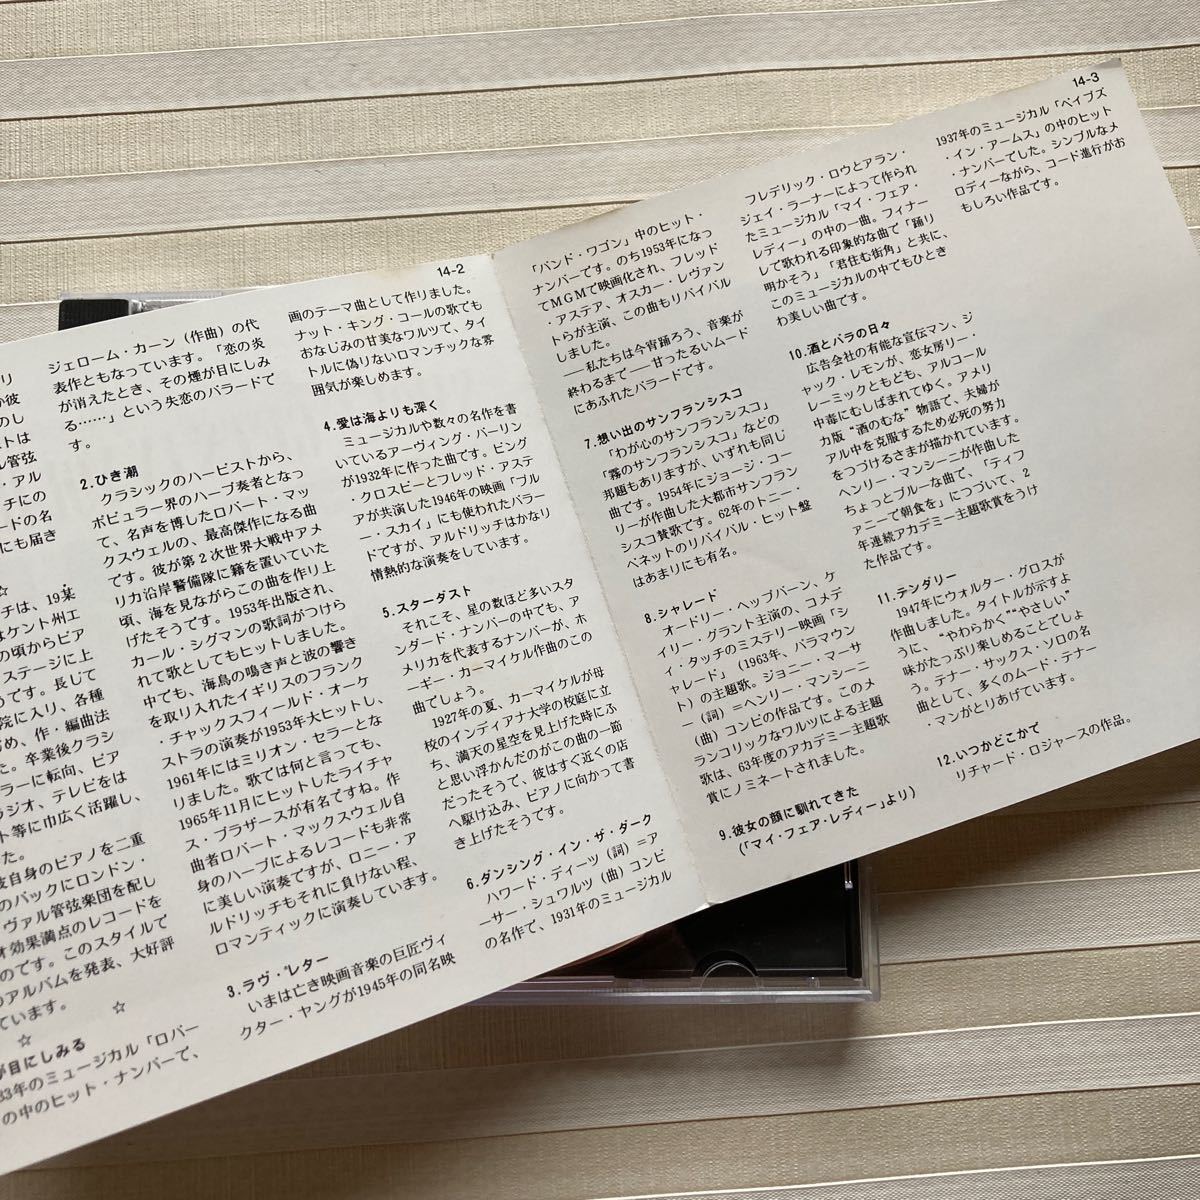 リ
か彼
のし
ストは
ル管弦
・アル
ッチにの
ードの名
にも届き
☆
ッチは、19某
はケント州エ
の頃からピア
ステージに上
うです。長じて
院に入り、各種
じめ、作・編曲法
た。卒業後クラシ
ラーに転向、ピア
ラジオ、テレビをは
ト等に巾広く活躍し、
した。
彼自身のピアノを二重
のバックにロンドン・
ヴァル管弦楽団を配し
オ効果満点のレコードを
のです。このスタイルで
のアルバムを発表、大好評
ています。
☆ ☆
が目にしみる
33年のミュージカル「ロバー
の中のヒット・ナンバーで、
14-2
ジェローム・カーン（作曲）の代
表作ともなっています。「恋の炎
が消えたとき、その煙が目にしみ
る……」という失恋のバラードで
す。
2.ひき潮
クラシックのハーピストから、
ポピュラー界のハープ奏者となっ
て、名声を博したロバート・マッ
クスウェルの、最高傑作になる曲
です。彼が第2次世界大戦中アメ
リカ沿岸警備隊に籍を置いていた
頃、海を見ながらこの曲を作り上
げたそうです。1953年出版され、
カール・シグマンの歌詞がつけら
れて歌としてもヒットしました。
中でも、海鳥の鳴き声と波の響き
を取り入れたイギリスのフランク
・チャックスフィールド・オーケ
ストラの演奏が1953年大ヒットし、
1961年にはミリオン・セラーとな
りました。歌では何と言っても、
1965年11月にヒットしたライチャ
ス・ブラザースが有名ですね。作
曲者ロバート・マックスウェル自
身のハープによるレコードも非常
に美しい演奏ですが、ロニー・ア
ルドリッチもそれに負けない程、
ロマンティックに演奏しています。
3.ラヴ・レター
いまは亡き映画音楽の巨匠ヴィ
クター・ヤングが1945年の同名映
画のテーマ曲として作りました。
ナット・キング・コールの歌でも
おなじみの甘美なワルツで、タイ
トルに偽りないロマンチックな雰
囲気が楽しめます。
4.愛は海よりも深く
ミュージカルや数々の名作を書
いているアーヴィング・バーリン
が1932年に作った曲です。ビング
・クロスビーとフレッド・アステ
アが共演した1946年の映画「ブル
ー・スカイ」にも使われたバラー
ドですが、アルドリッチはかなり
情熱的な演奏をしています。
5.スターダスト
それこそ、星の数ほど多いスタ
ンダード・ナンバーの中でも、ア
メリカを代表するナンバーが、ホ
ーギー・カーマイケル作曲のこの
曲でしょう。
1927年の夏、カーマイケルが母
校のインディアナ大学の校庭に立
ち、満天の星空を見上げた時にふ
と思い浮かんだのがこの曲の一節
だったそうで、彼はすぐ近くの店
へ駆け込み、ピアノに向かって書
き上げたそうです。
6.ダンシング・イン・ザ・ダーク
ハワード・ディーツ（詞）＝ア
ーサー・シュワルツ（曲）コンビ
の名作で、1931年のミュージカル
14-3
「バンド・ワゴン」中のヒット・
ナンバーです。のち1953年になっ
てMGMで映画化され、フレッド
・アステア、オスカー・レヴァン
トらが主演、この曲もリバイバル
しました。
──私たちは今宵踊ろう、音楽が
終わるまで──甘ったるいムード
にあふれたバラードです。
7.想い出のサンフランシスコ
「わが心のサンフランシスコ」
「霧のサンフランシスコ」などの
邦題もありますが、いずれも同じ
曲です。1954年にジョージ・コー
リーが作曲した大都市サンフラン
シスコ賛歌です。62年のトニー・
ベネットのリバイバル・ヒット盤
はあまりにも有名。
8.シャレード
オードリー・ヘップバーン、ケ
イリー・グラント主演の、コメデ
ィ・タッチのミステリー映画「シ
ャレード」（1963年、パラマウン
ト）の主題歌。ジョニー・マーサ
ー（詞）＝ヘンリー・マンシーニ
（曲）コンビの作品です。このメ
ランコリックなワルツによる主題
歌は、63年度のアカデミー主題歌
賞にノミネートされました。
9.彼女の顔に馴れてきた
（「マイ・フェア・レディー」より）
フレデリック・ロウとアラン・
ジェイ・ラーナーによって作られ
たミュージカル「マイ・フェア・
レディー」の中の一曲。フィナー
レで歌われる印象的な曲で「踊り
明かそう」「君住む街角」と共に、
このミュージカルの中でもひとき
わ美しい曲です。
10.酒とバラの日々
広告会社の有能な宣伝マン、ジ
ャック・レモンが、恋女房リー・
レーミックともども、アルコール
中毒にむしばまれてゆく。アメリ
カ版“酒のむな”物語で、夫婦が
アル中を克服するため必死の努力
をつづけるさまが描かれています。
ヘンリー・マンシーニが作曲した
ちょっとブルーな曲で、「ティフ
ァニーで朝食を」につづいて、2
年連続アカデミー主題歌賞をうけ
た作品です。
11.テンダリー
1947年にウォルター・グロスが
作曲しました。タイトルが示すよ
うに、“やわらかく”“やさしい”
味がたっぷり楽しめることでしょ
う。テナー・サックス・ソロの名
曲として、多くのムード・テナー
・マンがとりあげています。
12.いつかどこかで
リチャード・ロジャースの作品。
1937年のミュージカル「ベイブズ
・イン・アームス」の中のヒット
・ナンバーでした。シンプルなメ
ロディーながら、コード進行がお
もしろい作品です。